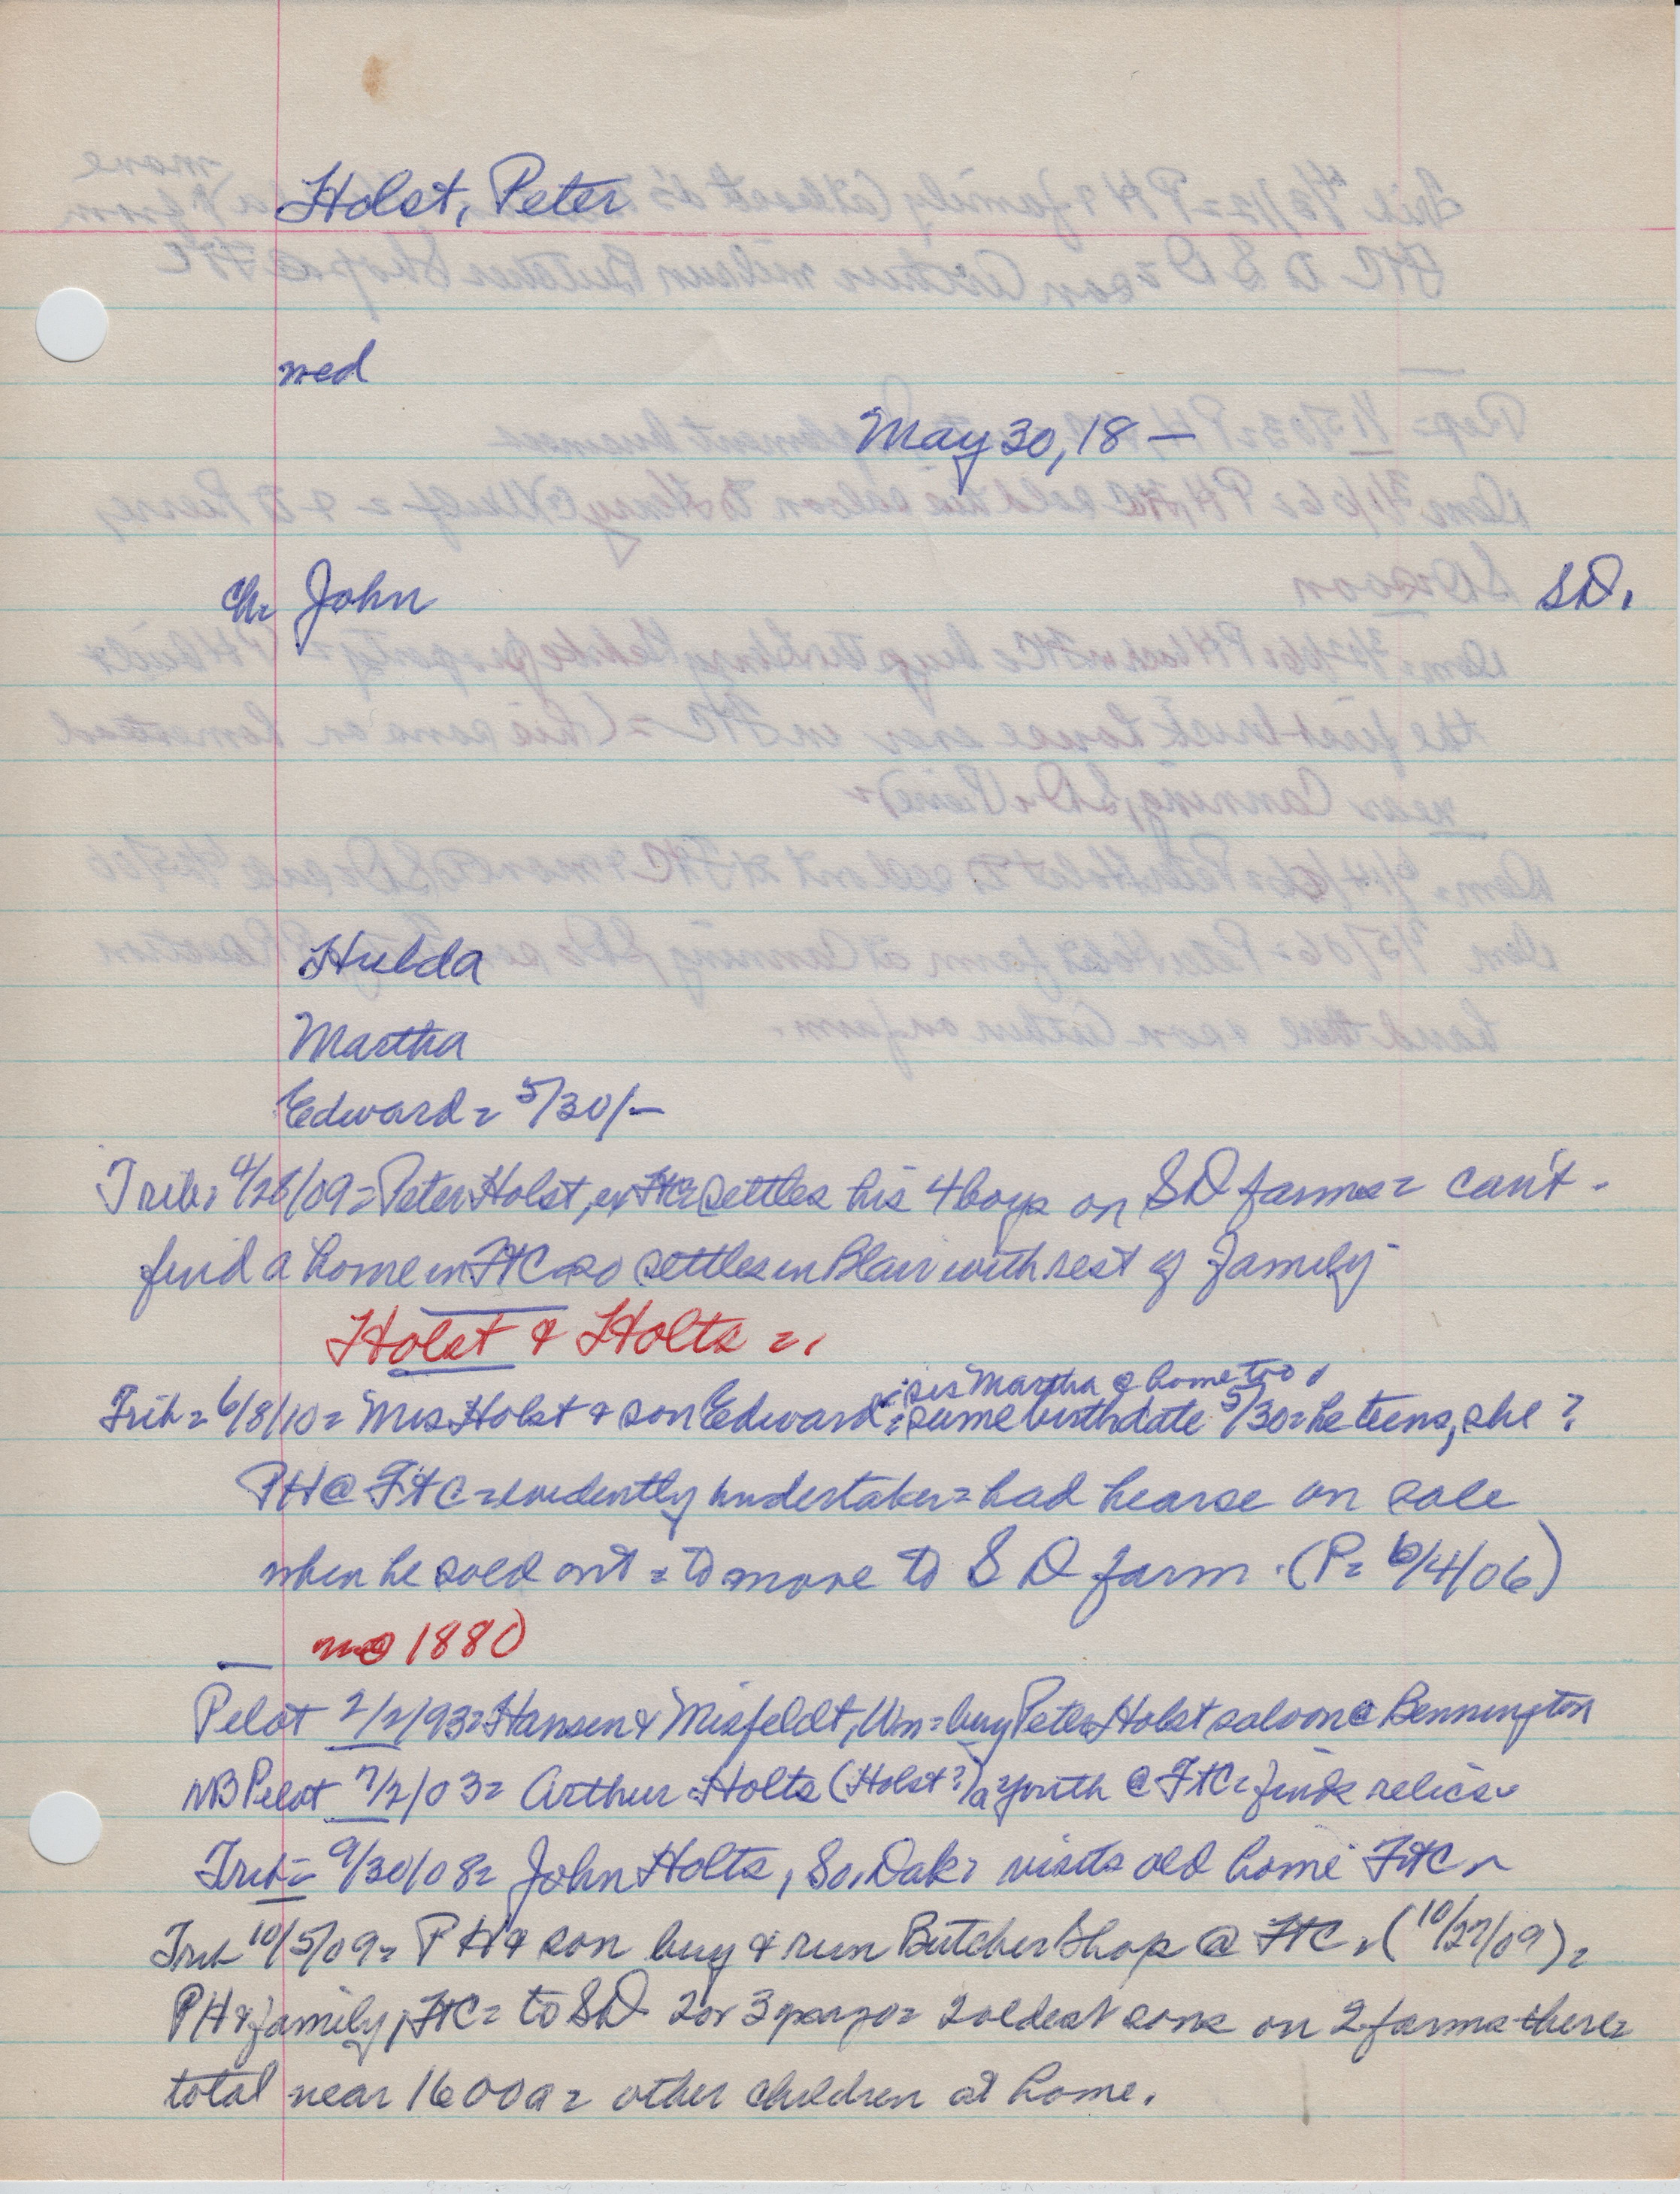 Holst, Peter
med
May 30, 18 —
ch= John SD.
Hulda
Martha
Edward = 5/30/—
Trib= 4/26/09= Peter Holst, ex FtC= settles his 4 boys on SD farms= can't
find a home in FtC so settles in Blair with rest of family
Holst & Holts =.
sis Martha @ home too
Trib= 6/8/10= Mrs Holst & son Edward = same birthdate 5/30= he teens, she ?
PH @ FtC= evidently undertaker= had hearse on sale
when he sold out = to move to SD farm. (P= 6/4/06)
no 1880
Pilot 2/2/93= Hansen & Misfeldt, Wm= buy Peter Holst saloon @ Bennington
NB Pilot 7/2/03= Arthur Holts (Holst?) a youth @ FtC= finds relics
Trib= 9/30/08= John Holts, So. Dak= visits old home FtC
Trib 10/5/09= PH & son buy & run Butcher Shop @ FtC. (10/27/09)=
PH & family, FtC= to SD 2 or 3 yrs ago= 2 oldest sons on 2 farms there=
total near 1600a= other children at home.